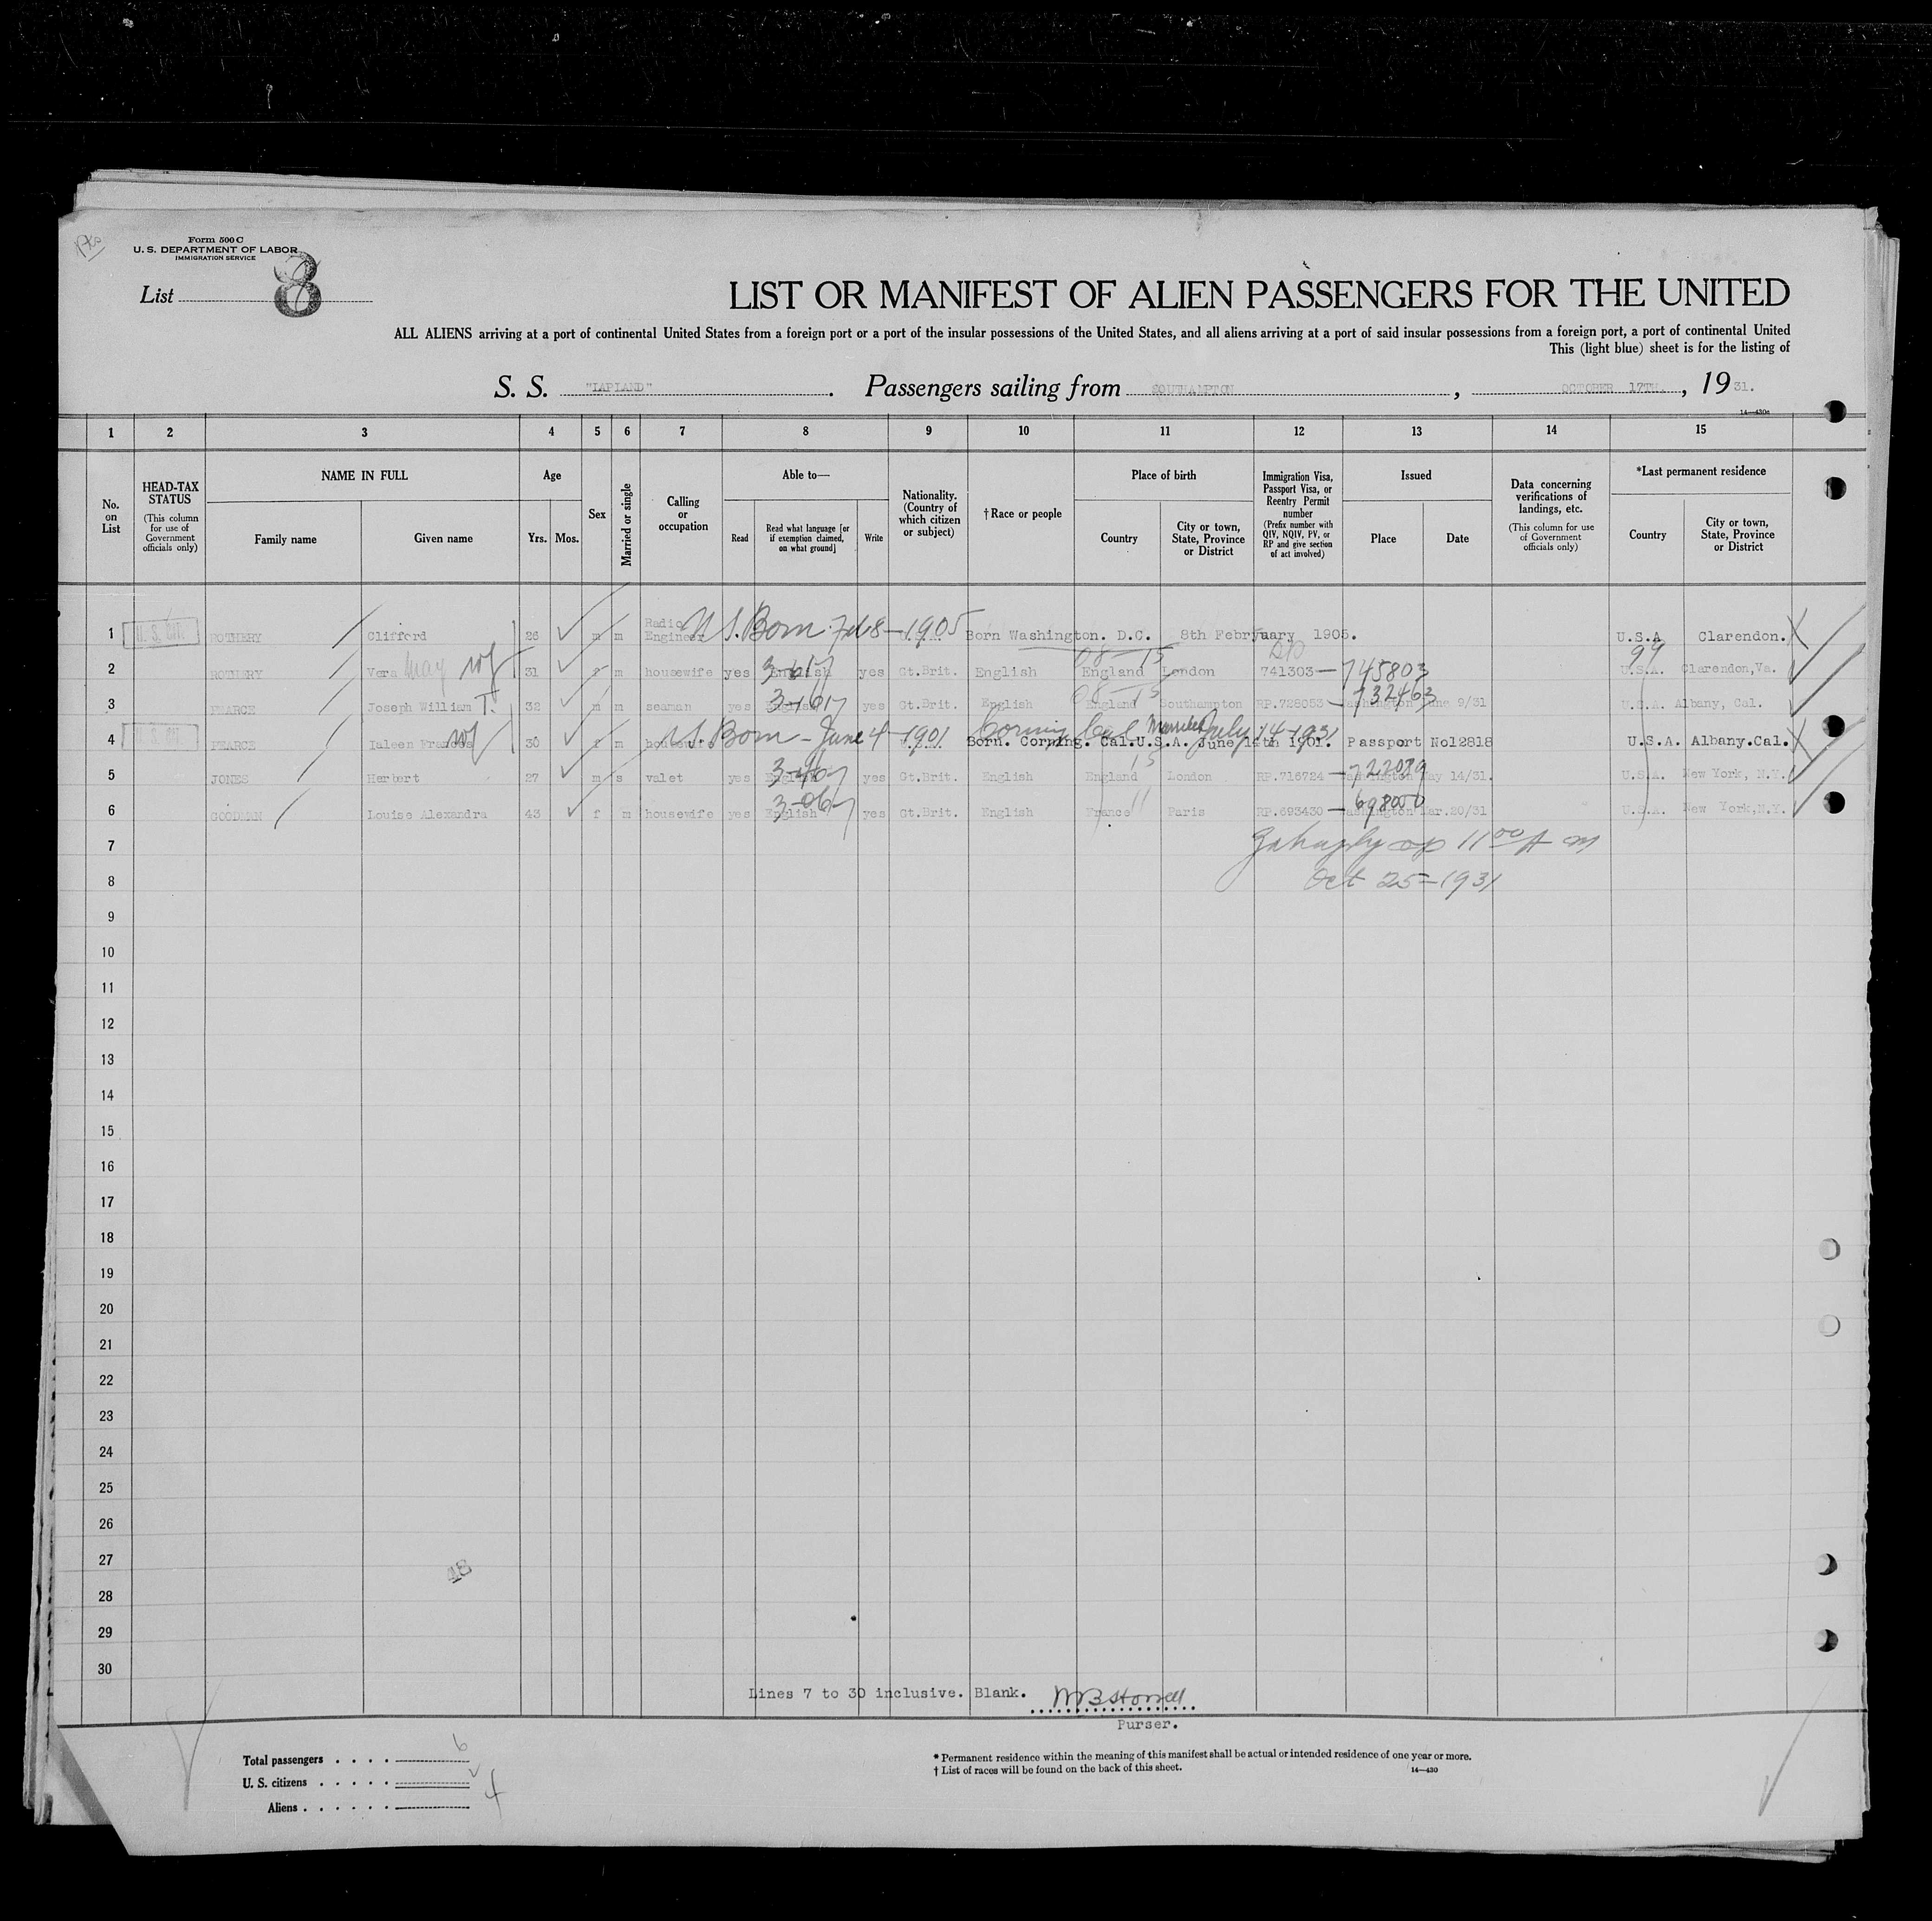 Form 500 C
U. S. DEPARTMENT OF LABOR
IMMIGRATION SERVICE
List 8
LIST OR MANIFEST OF ALIEN PASSENGERS FOR THE UNITED
ALL ALIENS arriving at a port of continental United States from a foreign port or a port of the insular possessions of the United States, and all aliens arriving at a port of said insular possessions from a foreign port, a port of continental United
This (light blue) sheet is for the listing of
S. S. "LAPLAND". Passengers sailing from SOUTHAMPTON, OCTOBER 17TH, 1931.
14—430c
1 2 3 4 5 6 7 8 9 10 11 12 13 14 15
No. on List
HEAD-TAX STATUS (This column for use of Government officials only)
NAME IN FULL
Family name
Given name
Age
Yrs.
Mos.
Sex
Married or single
Calling or occupation
Able to—
Read
Read what language [or if exemption claimed, on what ground]
Write
Nationality. (Country of which citizen or subject)
† Race or people
Place of birth
Country
City or town, State, Province or District
Immigration Visa, Passport Visa, or Reentry Permit number (Prefix number with QIV, NQIV, PV, or RP and give section of act involved)
Issued
Place
Date
Data concerning verifications of landings, etc. (This column for use of Government officials only)
*Last permanent residence
Country
City or town, State, Province or District
1 U. S. CIT. ROTHERY Clifford 26 m m Radio Engineer U S. Born Feb 8—1905 Born Washington. D.C. 8th February 1905. U.S.A Clarendon.
2 ROTHERY Vera May wf 31 f m housewife yes English yes Gt.Brit. English England London 741303—745803 U.S.A. Clarendon,Va.
08—15
99
3 PEARCE Joseph William T. 32 m m seaman yes English yes Gt.Brit. English England Southampton RP.728053—732463 Washington June 9/31 U.S.A. Albany, Cal.
08—15
4 U. S. CIT. PEARCE Ialeen Frances wf 30 f m U.S. Born - June 4—1901 Corning Cal Married July 14-1931
Born. Corning. Cal.U.S.A. June 14th 1901. Passport No12818 U.S.A. Albany.Cal.
5 JONES Herbert 27 m s valet yes English yes Gt.Brit. English England London RP.716724—722079 Washington May 14/31. U.S.A. New York, N.Y.
15
6 GOODMAN Louise Alexandra 43 f m housewife yes English yes Gt.Brit. English France Paris RP.693430—698050 Washington Mar.20/31 U.S.A. New York,N.Y.
11
7 11 00 A m
8 Oct 25—1931
9
10
11
12
13
14
15
16
17
18
19
20
21
22
23
24
25
26
27
28
29
30
48
Lines 7 to 30 inclusive. Blank.
Purser.
Total passengers . . . . 6
U. S. citizens . . . . .
Aliens . . . . . . 4
* Permanent residence within the meaning of this manifest shall be actual or intended residence of one year or more.
† List of races will be found on the back of this sheet.
14—430